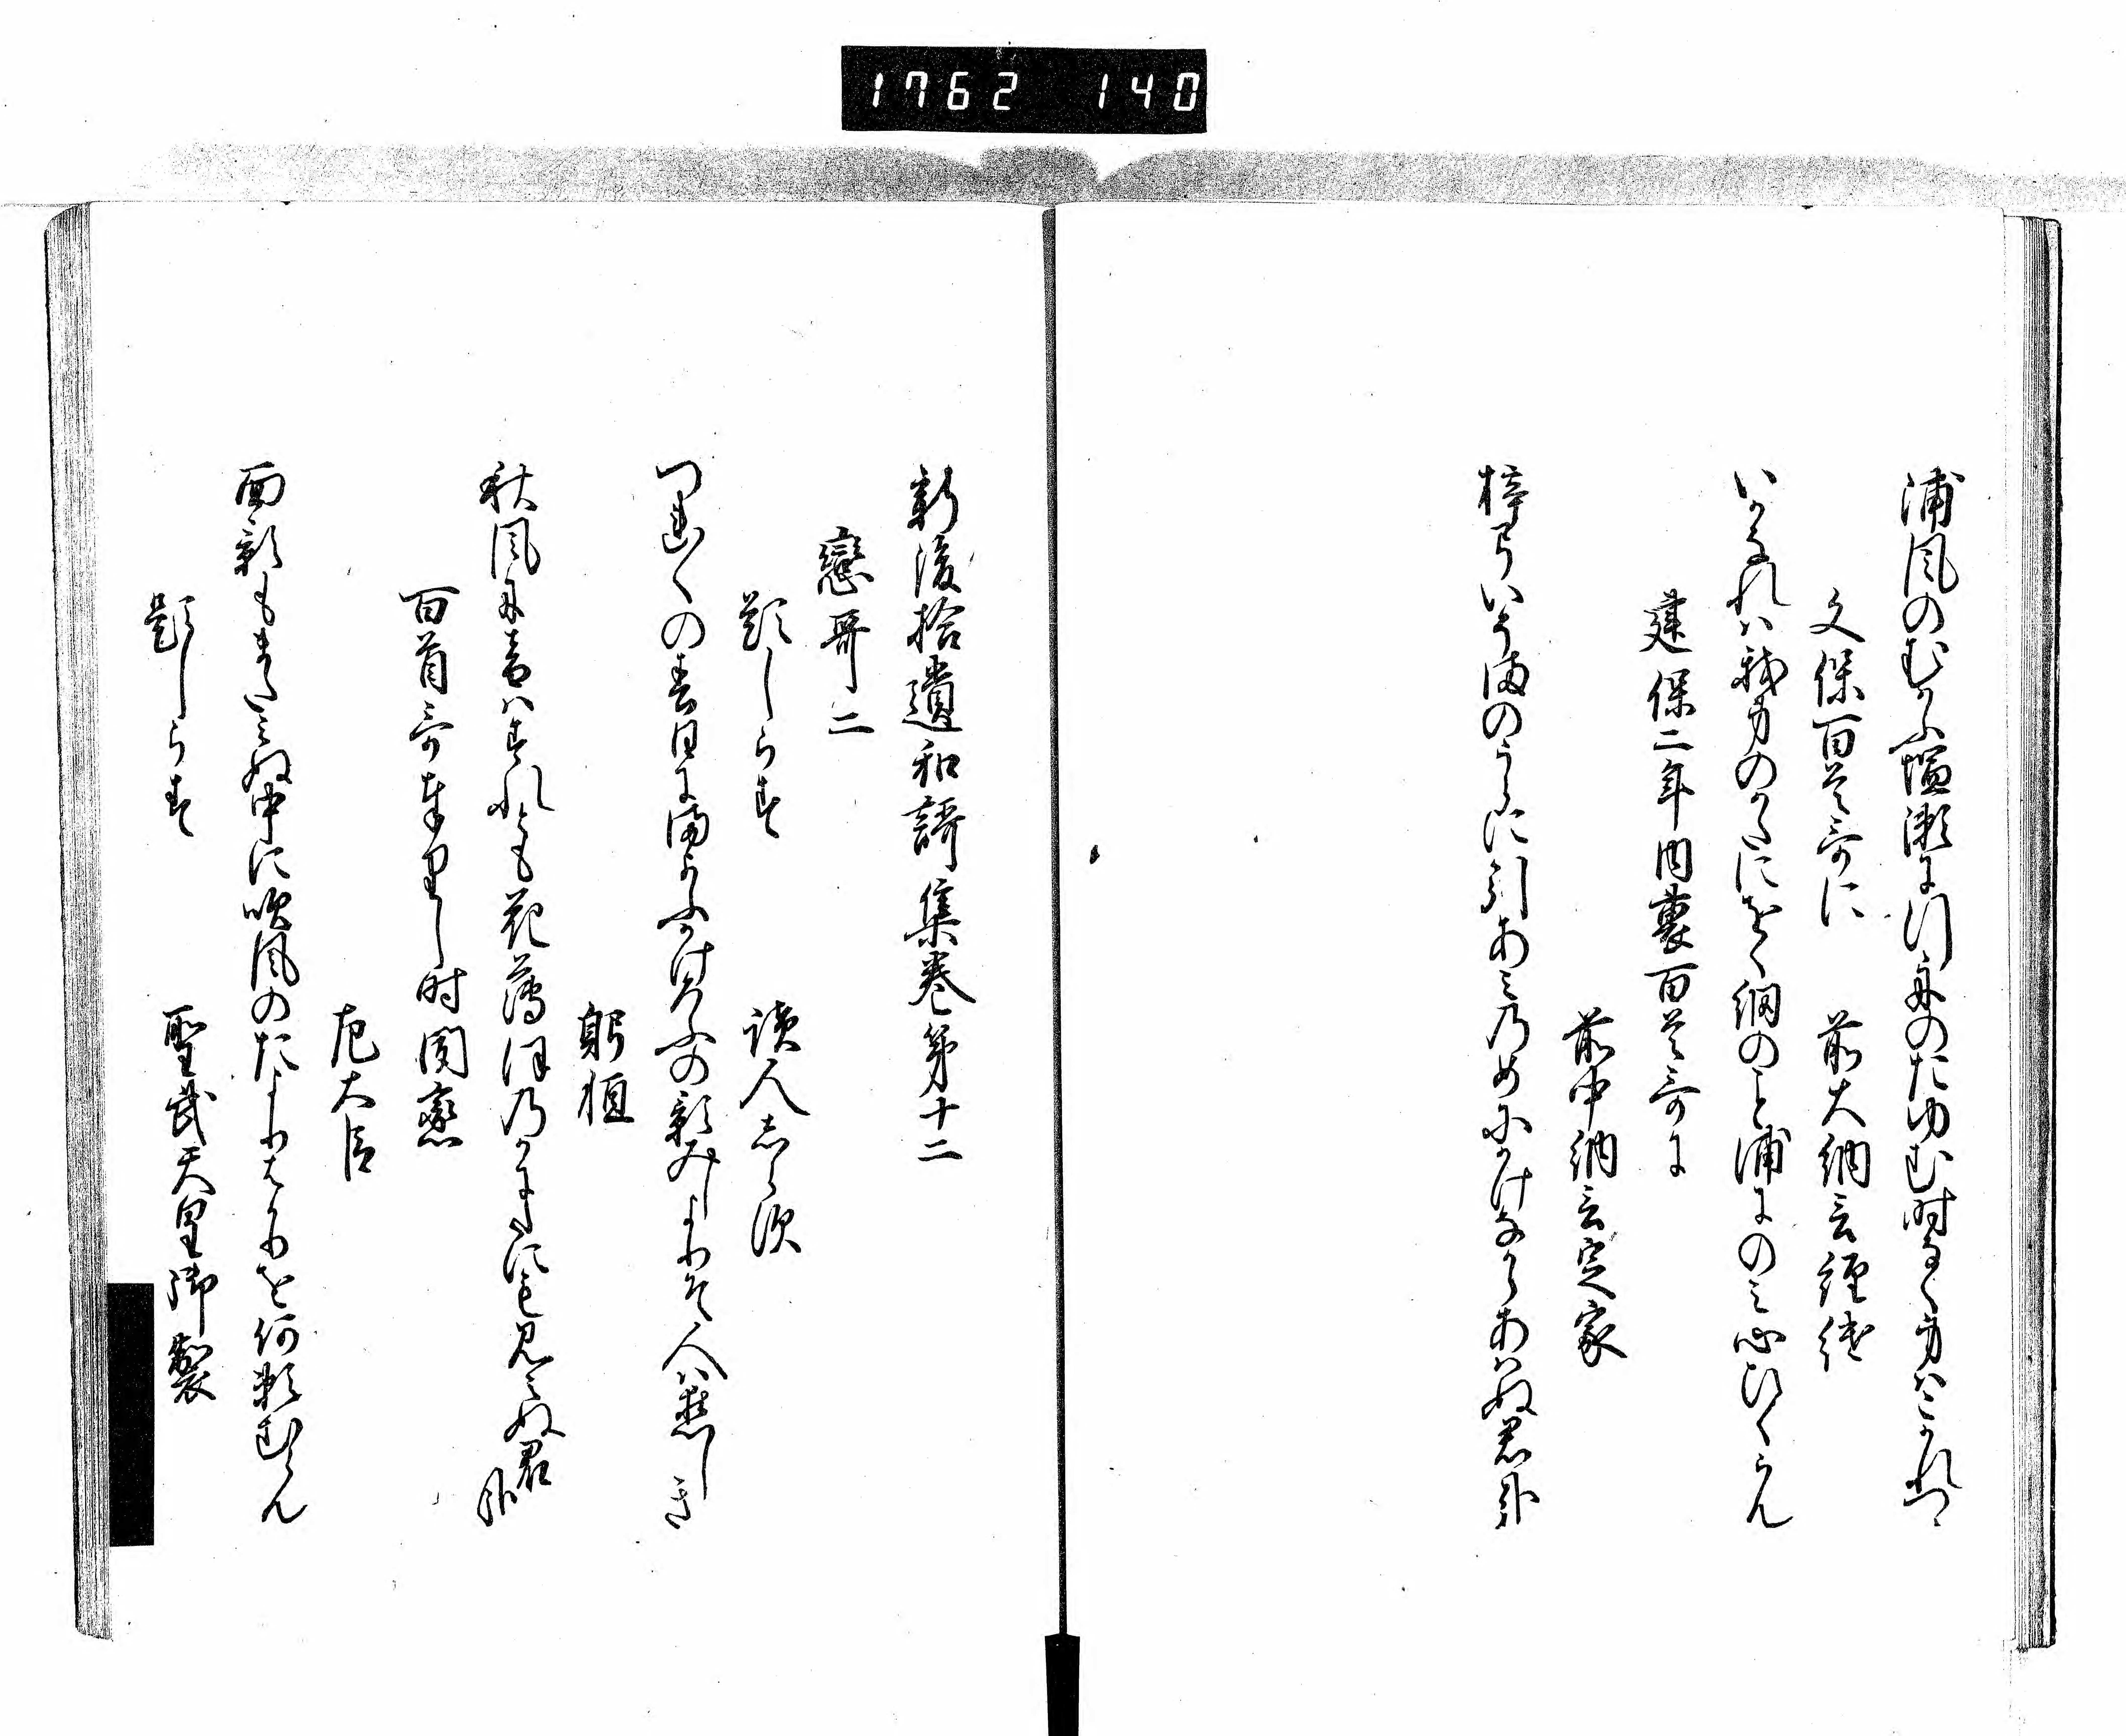 1762 140
浦風のむかふ塩瀬に行舟のたゆむ時なく身はこかれつゝ
文保百首哥に 前大納言経継
いかなれは我身のかたにをく網のこと浦にのミ心ひくらん
建保二年内裏百首哥に
前中納言定家
梓弓いそまのうらに引あミのめにかけなからあはぬ君哉
新後拾遺和謌集巻第十二
戀哥二
題しらす 読人しらす
つれ〱の春日にまよふかけろふの影みしよりそ人は恋しき
躬恒
秋風に音はすれとも花薄ほのかにたにも見えぬ君哉
百首哥奉りし時聞恋
左大臣
面影もまたミぬ中に吹風のたよりはかりを何頼むらん
題しらす 聖武天皇御製